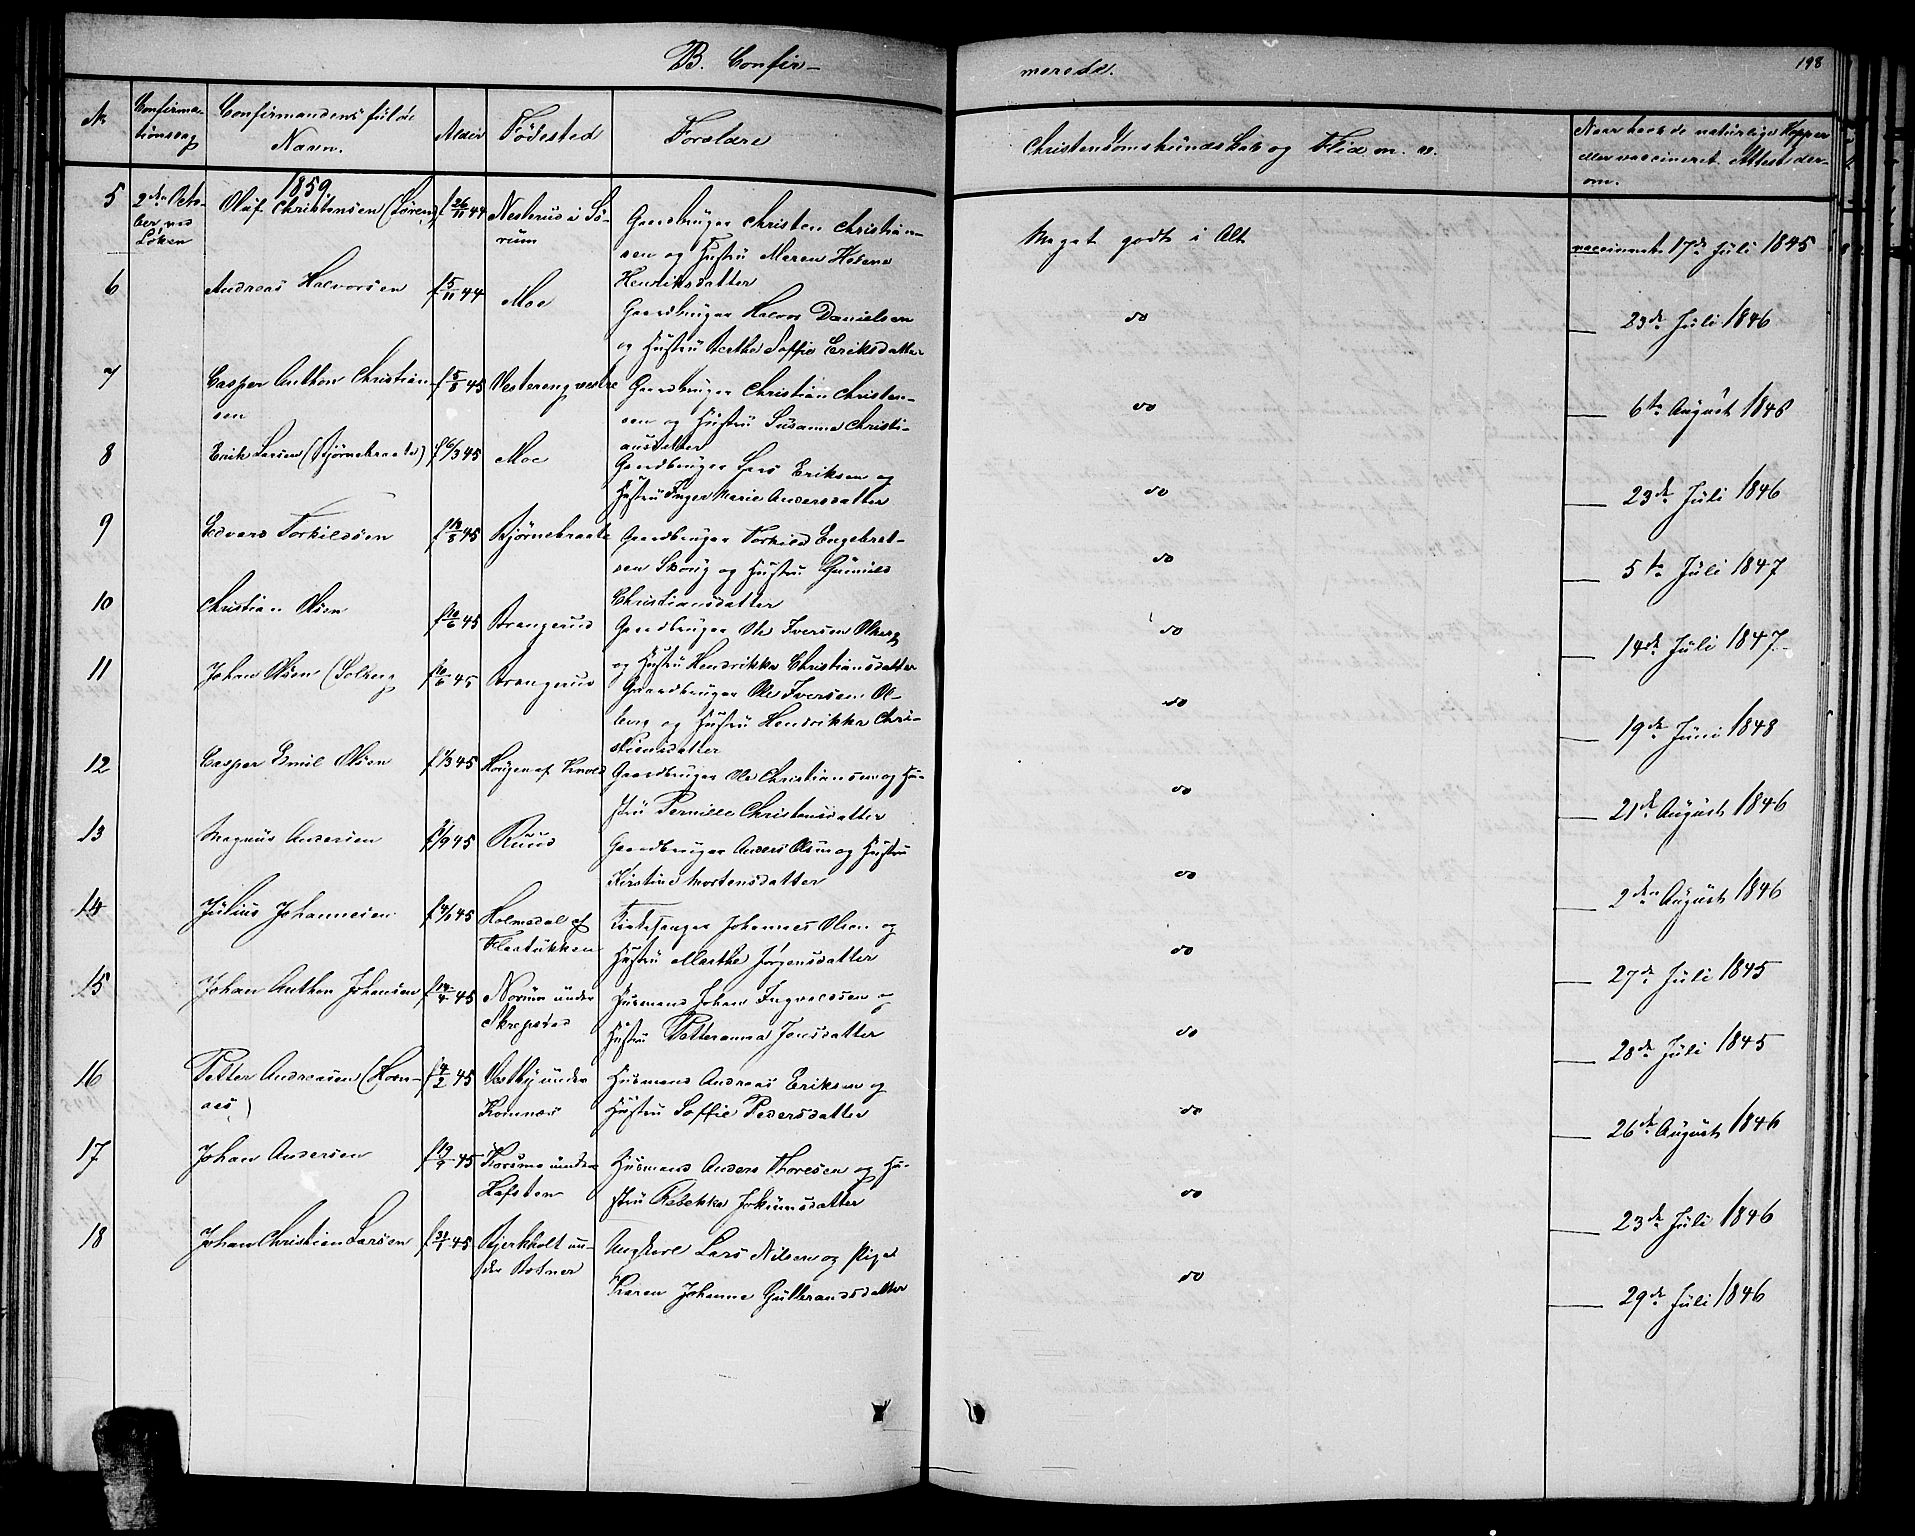 B. Confir-
merede.
198
No
Confirma-
tionsdag
Confirmandens fulde
Navn.
Alder
Fødested
Forældre
Christendomskundskab og Flid m. v.
Naar havt de naturlige Kopper
eller vaccineret. Attest der-
om.
1859.
5 2den Octo-
ber ved
Løken
Oluf Christensen (Søreng) f 26/11 44 Nesterud i Sø-
rum
Gaardbruger Christen Christian-
sen og Hustru Maren Helene
Henriksdatter
Meget godt i Alt
vaccineret 17de Juli 1845
6 Andreas Halvorsen f 5/11 44 Moe
Gaardbruger Halvor Danielsen
og Hustru Berthe Soffie Eriksdatter
do
23de Juli 1846
7 Casper Anthon Christian-
sen f 5/8 45 Vestereng vestre
Gaardbruger Christian Christen-
sen og Hustru Susanne Christi-
ansdatter
do
6te August 1848
8 Erik Larsen (Bjørnebraate) f 6/3 45 Moe
Gaardbruger Lars Eriksen og
Hustru Inger Marie Andersdatter
do
23de Juli 1846
9 Edvard Torkildsen 45 Bjørnebraate
Gaardbruger Torkild Engebret-
sen Skoug og Hustru Gunild
Christiansdatter
do
5te Juli 1847
10 Christian Olsen f 10/6 45 Brangerud
Gaardbruger Ole Iversen Olberg
og Hustru Hendrikke Christiansdatter
do
14de Juli 1847
11 Johan Olsen (Solberg f 10/6 45 Brangerud
Gaardbruger Ole Iversen Ol-
berg og Hustru Hendrikke Chri-
stiansdatter
do
19de Juni 1848
12 Casper Emil Olsen 45 Haugen af
Gaardbruger Ole Christiansen og Hu-
stru Pernille Christensdatter
do
21de August 1846
13 Magnus Andersen 45 Ruud
Gaardbruger Anders Olsen og Hustru
Kirstine Mortensdatter
do
2den August 1846
14 Julius Johannesen 45 Holmsdal af
Flaatukken
Johannes Olsen og
Hustru Marthe Jørgensdatter
do
27de Juli 1845
15 Johan Anthon Johansen 45 Norum under
Skrepstad
Husmand Johan Ingvaldsen og
Hustru Petteranna Jonsdatter
do
28de Juli 1845
16 Petter Andreasen (Kom-
næs) f 4/2 45 under
Komnæs
Husmand Andreas Eriksen og
Hustru Soffie Pedersdatter
do
26de August 1846
17 Johan Andersen 45 Korsmo under
Hafsten
Husmand Anders Thoresen og Hu-
stru Rebekka Jokumsdatter
do
23de Juli 1846
18 Johan Christian Larsen 45 Bjerkholt un-
der Botner
Ungkarl Lars Nilsen og Pige
Karen Johanne Gulbrandsdatter
do
29de Juli 1846